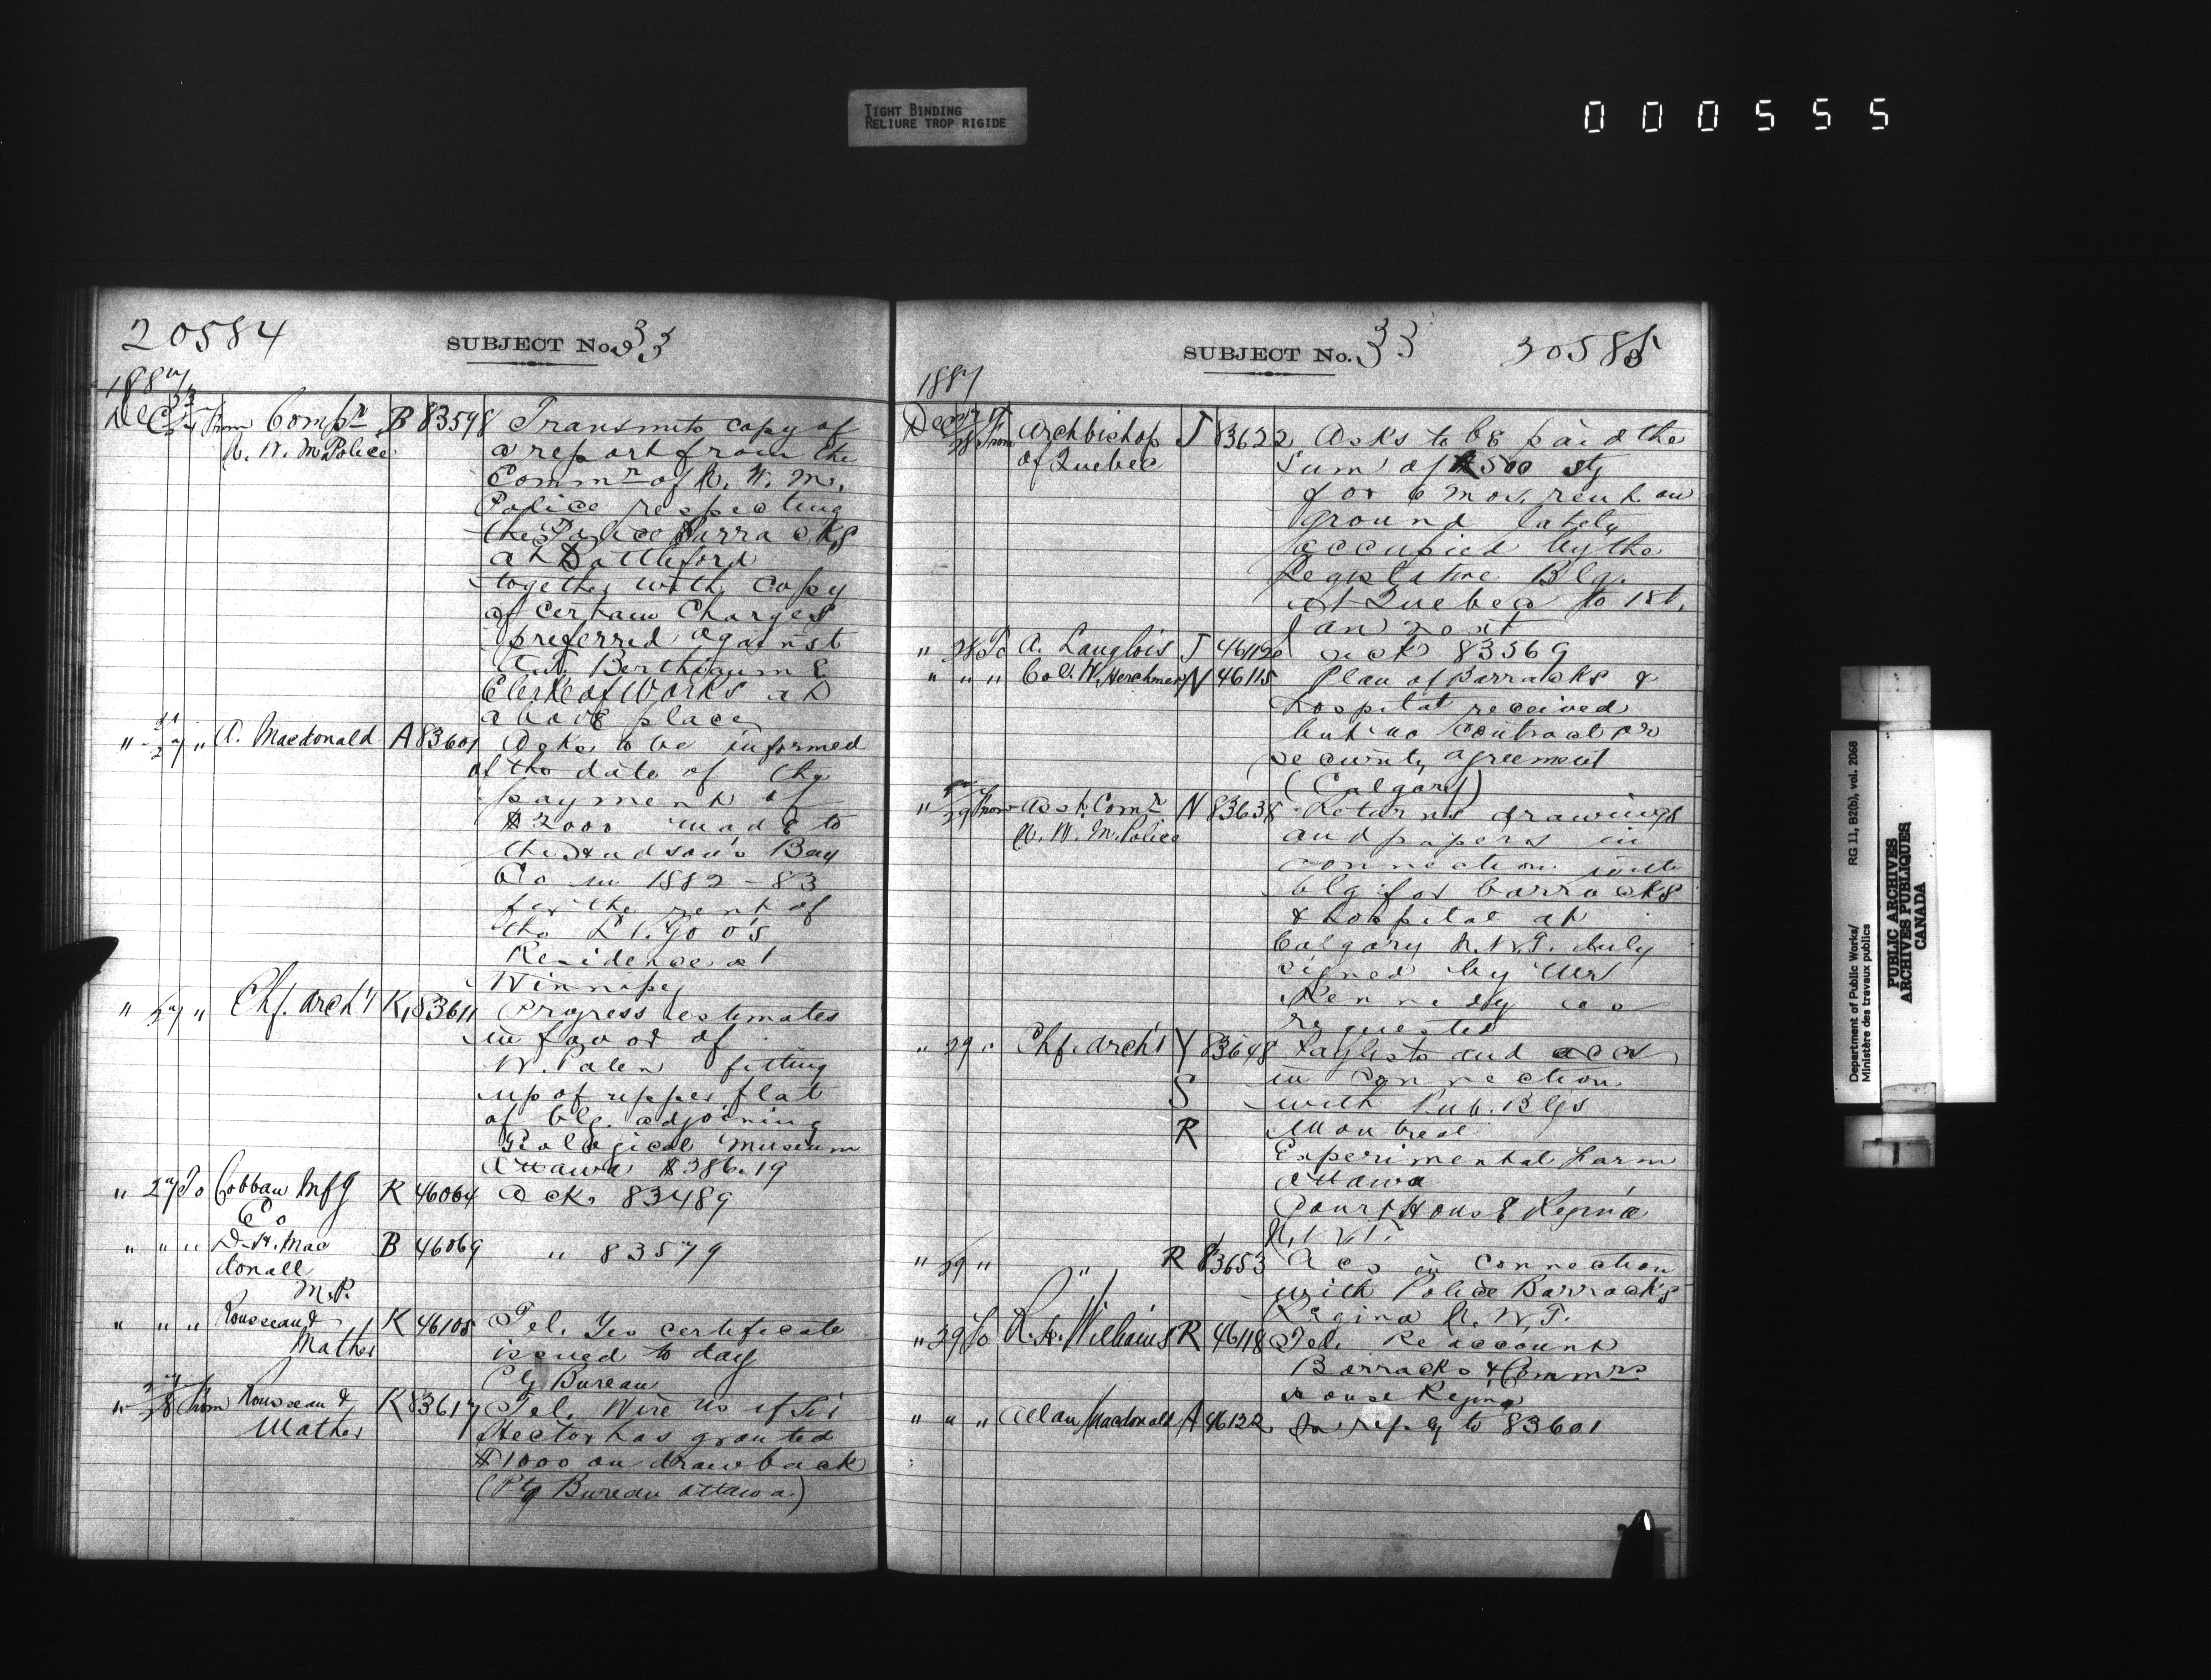 TIGHT BINDING
RELIURE TROP RIGIDE
000555
20584
SUBJECT No. 33
1887
Dec 27 From Compr B 83598 Transmits copy of
N. W. M. Police a report from the
Commr of N. W. M.
Police respecting
the Police Barracks
at Battleford
together with copy
of certain Charges
preferred against
Berthiaume
Clerk of Works at
above place
" 27 " A. Macdonald A 83601 Asks to be informed
of the date of the
payment of
$2000 made to
the Hudson's Bay
Co in 1882-83
for the rent of
the Lt. Gov's
Residence at
Winnipeg
" 27 " Chf. Archt K 83611 Progress estimates
in favor of
W. Palen fitting
up of upper flat
of blg. adjoining
Geological Museum
Ottawa $386.19
" 27 To Cobban Mfg K 46064 Ack. 83489
Co
" " " D. H. Mac B 46069 " 83579
donall
M.P.
" " " Rousseau & K 46108 Tel. Yes certificate
Mather issued to day
Ptg Bureau
" 28 From Rousseau & K 83617 Tel. Wire us if Sir
Mather Hector has granted
$1000 on drawback
(Ptg Bureau Ottawa)
SUBJECT No. 33 20585
1887
Dec 28 From Archbishop J 83622 Asks to be paid the
of Quebec sum of 500 stg
for 6 mos. rent on
ground lately
occupied by the
Legislative Blg.
at Quebec to 1st.
Jan next
" 28 To A. Langlois J 46112 ack 83569
" " " Col. W. Herchmer N 46115 Plan of Barracks &
hospital received
but no contract or
security agreement
(Calgary)
" 29 From Asst. Comr N 83638 Returns drawings
N. W. M. Police and papers in
connection with
blg for barracks
& hospital at
Calgary N.W.T. duly
signed by Mr
Kennedy as
requested
" 29 " Chf. Archt Y 83648 Paylists and accs
S in connection
with Pub. Blgs
R Montreal
Experimental Farm
Ottawa
Court House Regina
N.W.T.
" 29 " " R 83653 Acs in connection
with Police Barracks
Regina N.W.T.
" 29 To R. H. Williams R 46118 Tel. Re account
Barracks & Commrs
House Regina
" " " Allan Macdonald A 46122 In reply to 83601
Department of Public Works/ RG 11, B2(b), vol. 2068
Ministère des travaux publics
PUBLIC ARCHIVES
ARCHIVES PUBLIQUES
CANADA